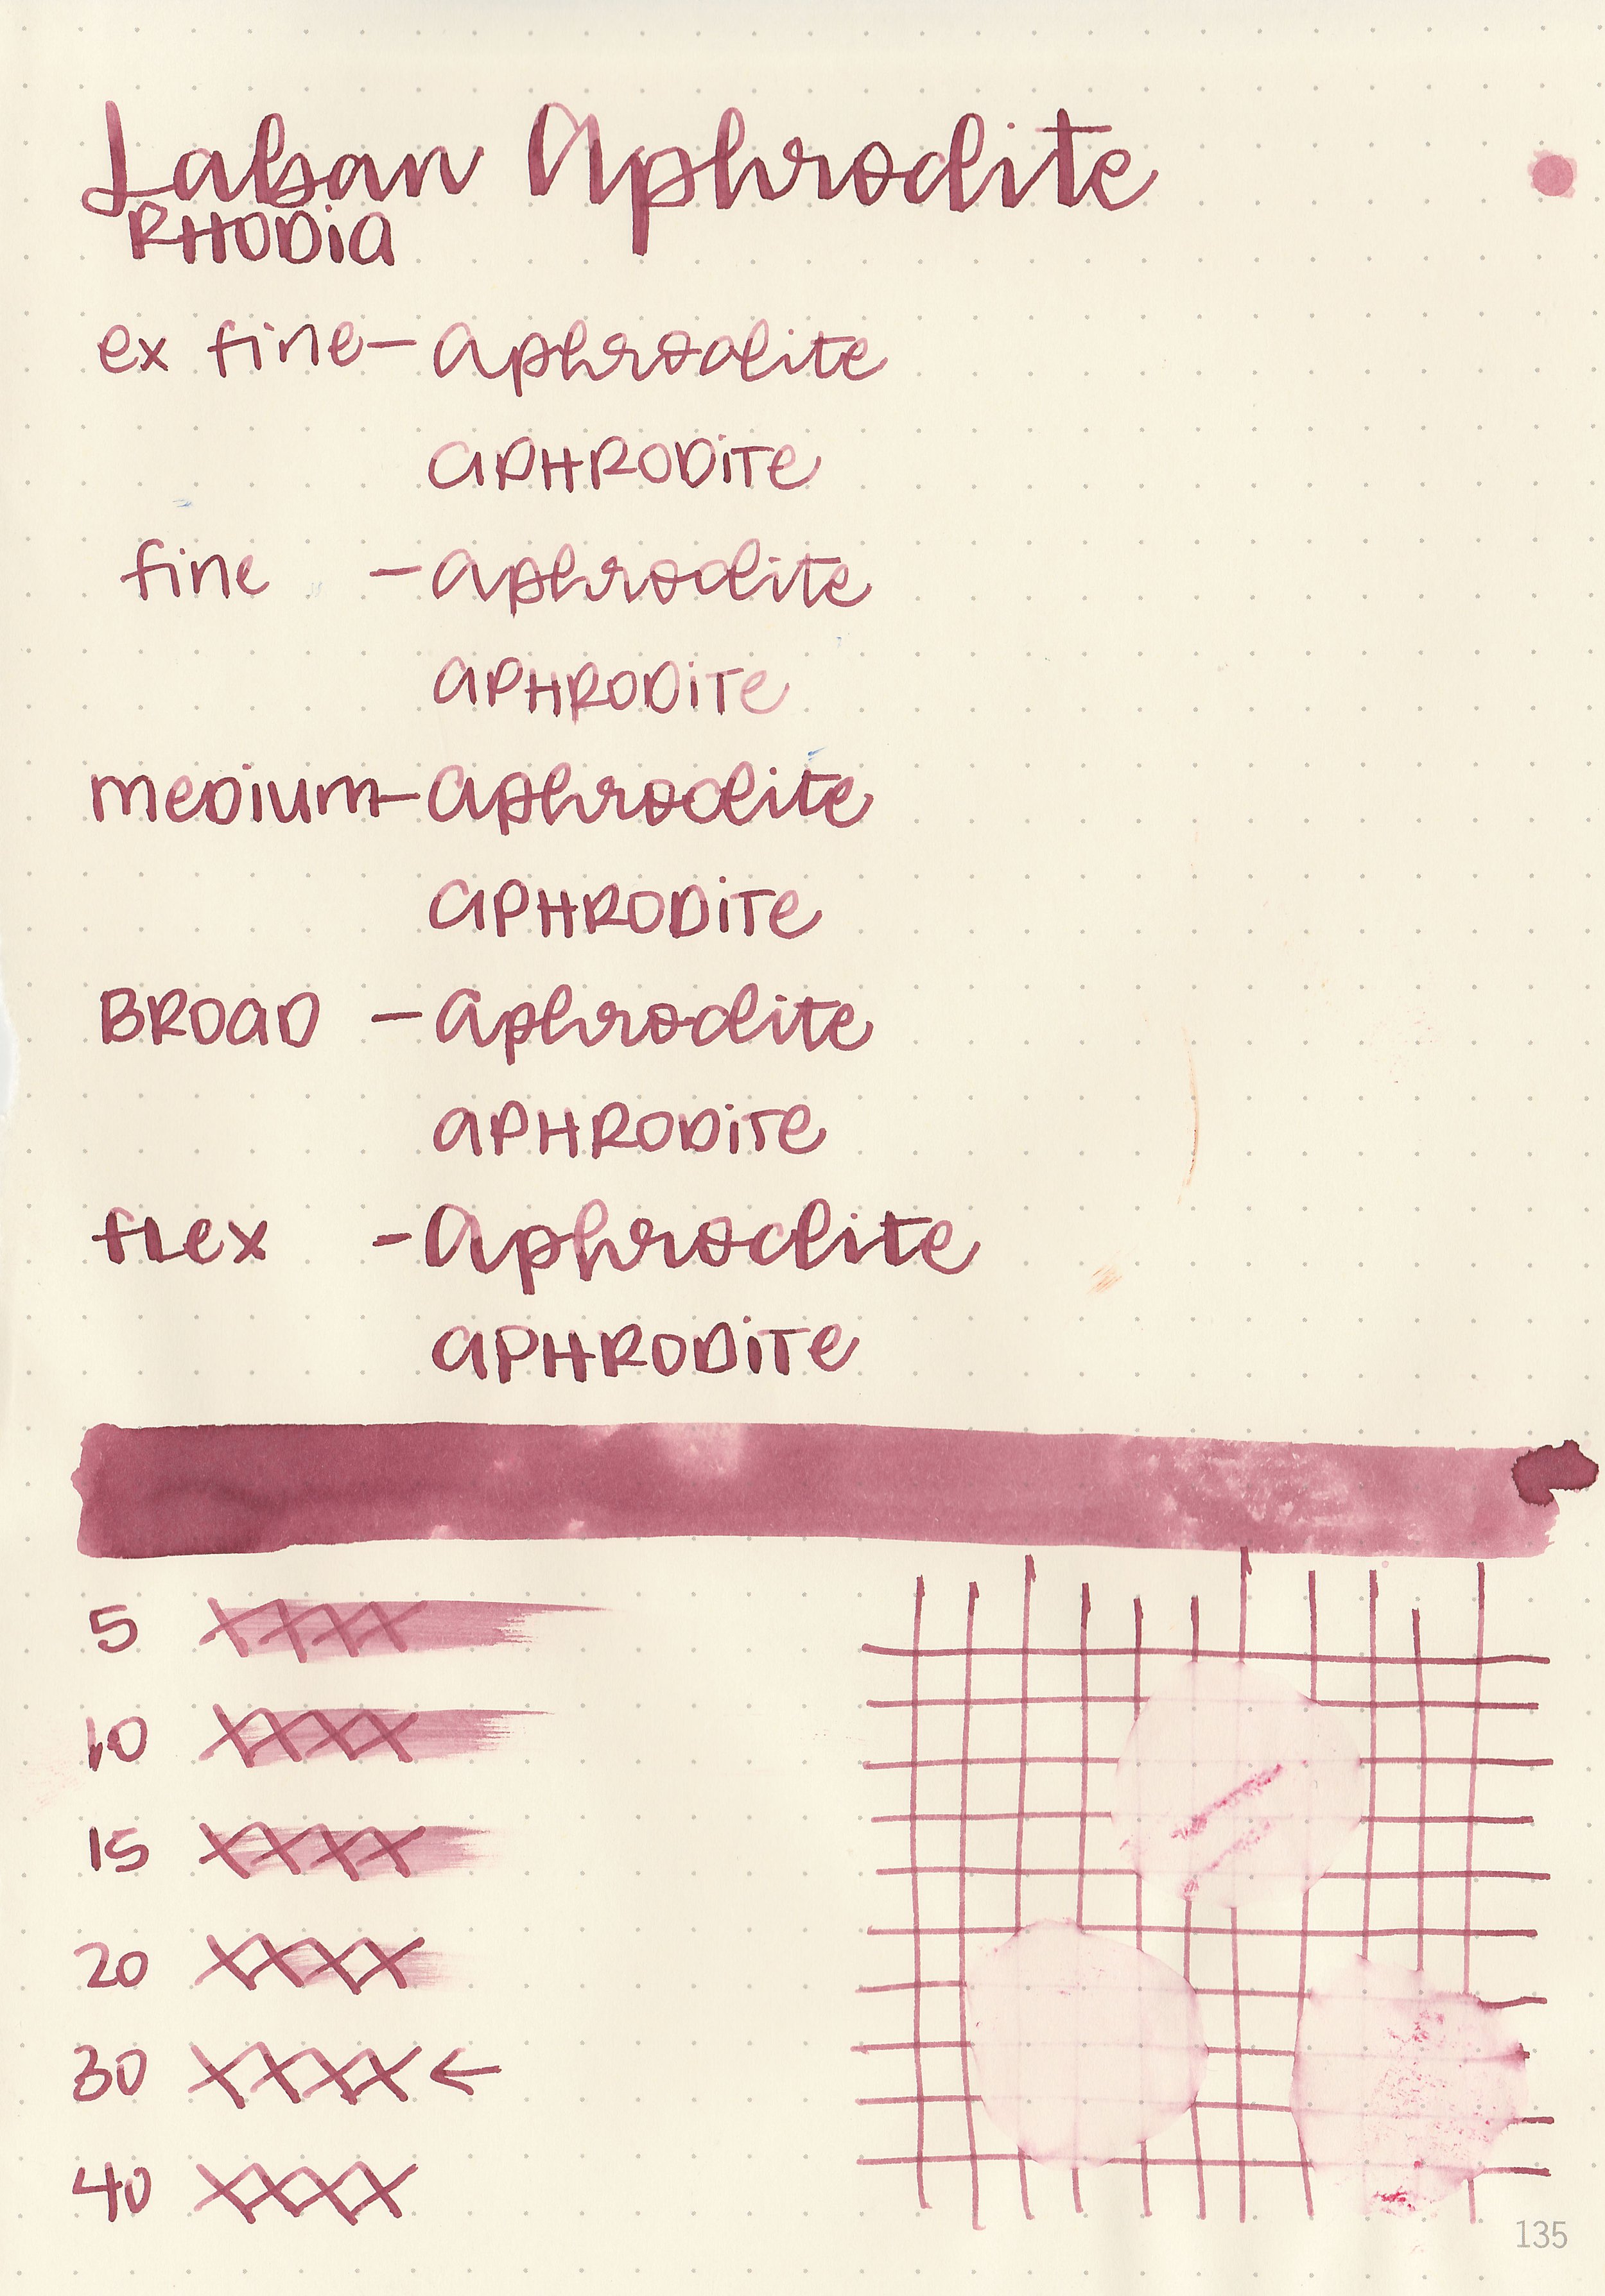 Laban Aphrodite
RHODIA
ex fine - aphrodite
APHRODITE
fine - aphrodite
APHRODITE
medium - aphrodite
APHRODITE
BROAD - aphrodite
APHRODITE
flex - aphrodite
APHRODITE
5 XXXX
10 XXXX
15 XXXX
20 XXXX
30 XXXX ←
40 XXXX
135